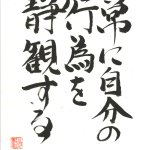 常に自分の
行為を
静観する